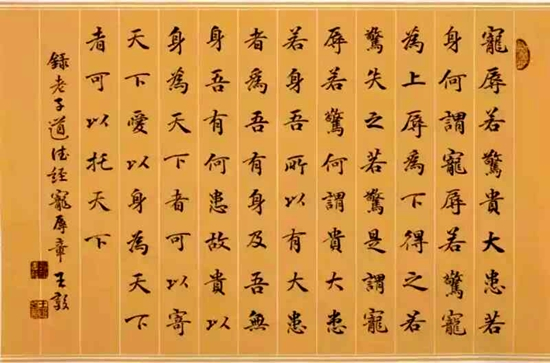 寵辱若驚貴大患若
身何謂寵辱若驚寵
為上辱為下得之若
驚失之若驚是謂寵
辱若驚何謂貴大患
若身吾所以有大患
者為吾有身及吾無
身吾有何患故貴以
身為天下者可以寄
天下愛以身為天下
者可以托天下
錄老子道德經寵辱章 王敦